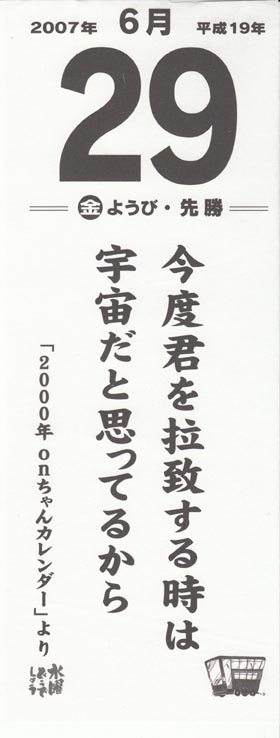 2007年 6月 平成19年
29
金ようび・先勝
今度君を拉致する時は
宇宙だと思ってるから
「2000年onちゃんカレンダー」より
水曜
どうで
しょう